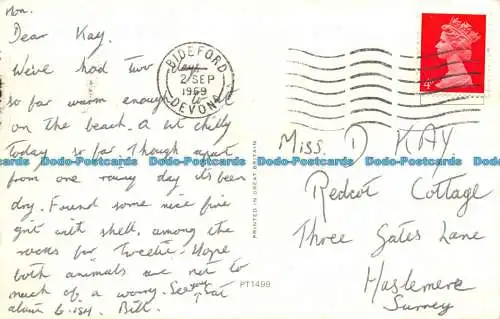 Mon.
Dear Kay,
We've had two days
so far warm enough
on the beach. A bit chilly
today so far. Though apart
from one rainy day its been
dry. Found some nice fine
grit with shell, among the
rocks for Tweetie. Hope
both animals are not too
much of a worry. See you Sat
about 6. ish. Bill.
BIDEFORD
2 SEP
1969
DEVON
4D
PRINTED IN GREAT BRITAIN
PT1499
Miss. D KAY
Redcot Cottage
Three Gates Lane
Haslemere
Surrey
Postcards iD-Postcards iD-Postcards iD-Postcards